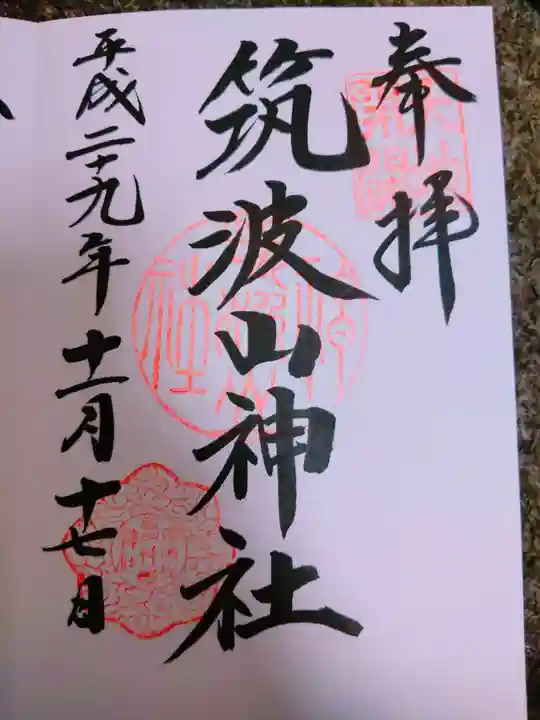 奉拝
筑波山神社
平成二十九年十一月十七日